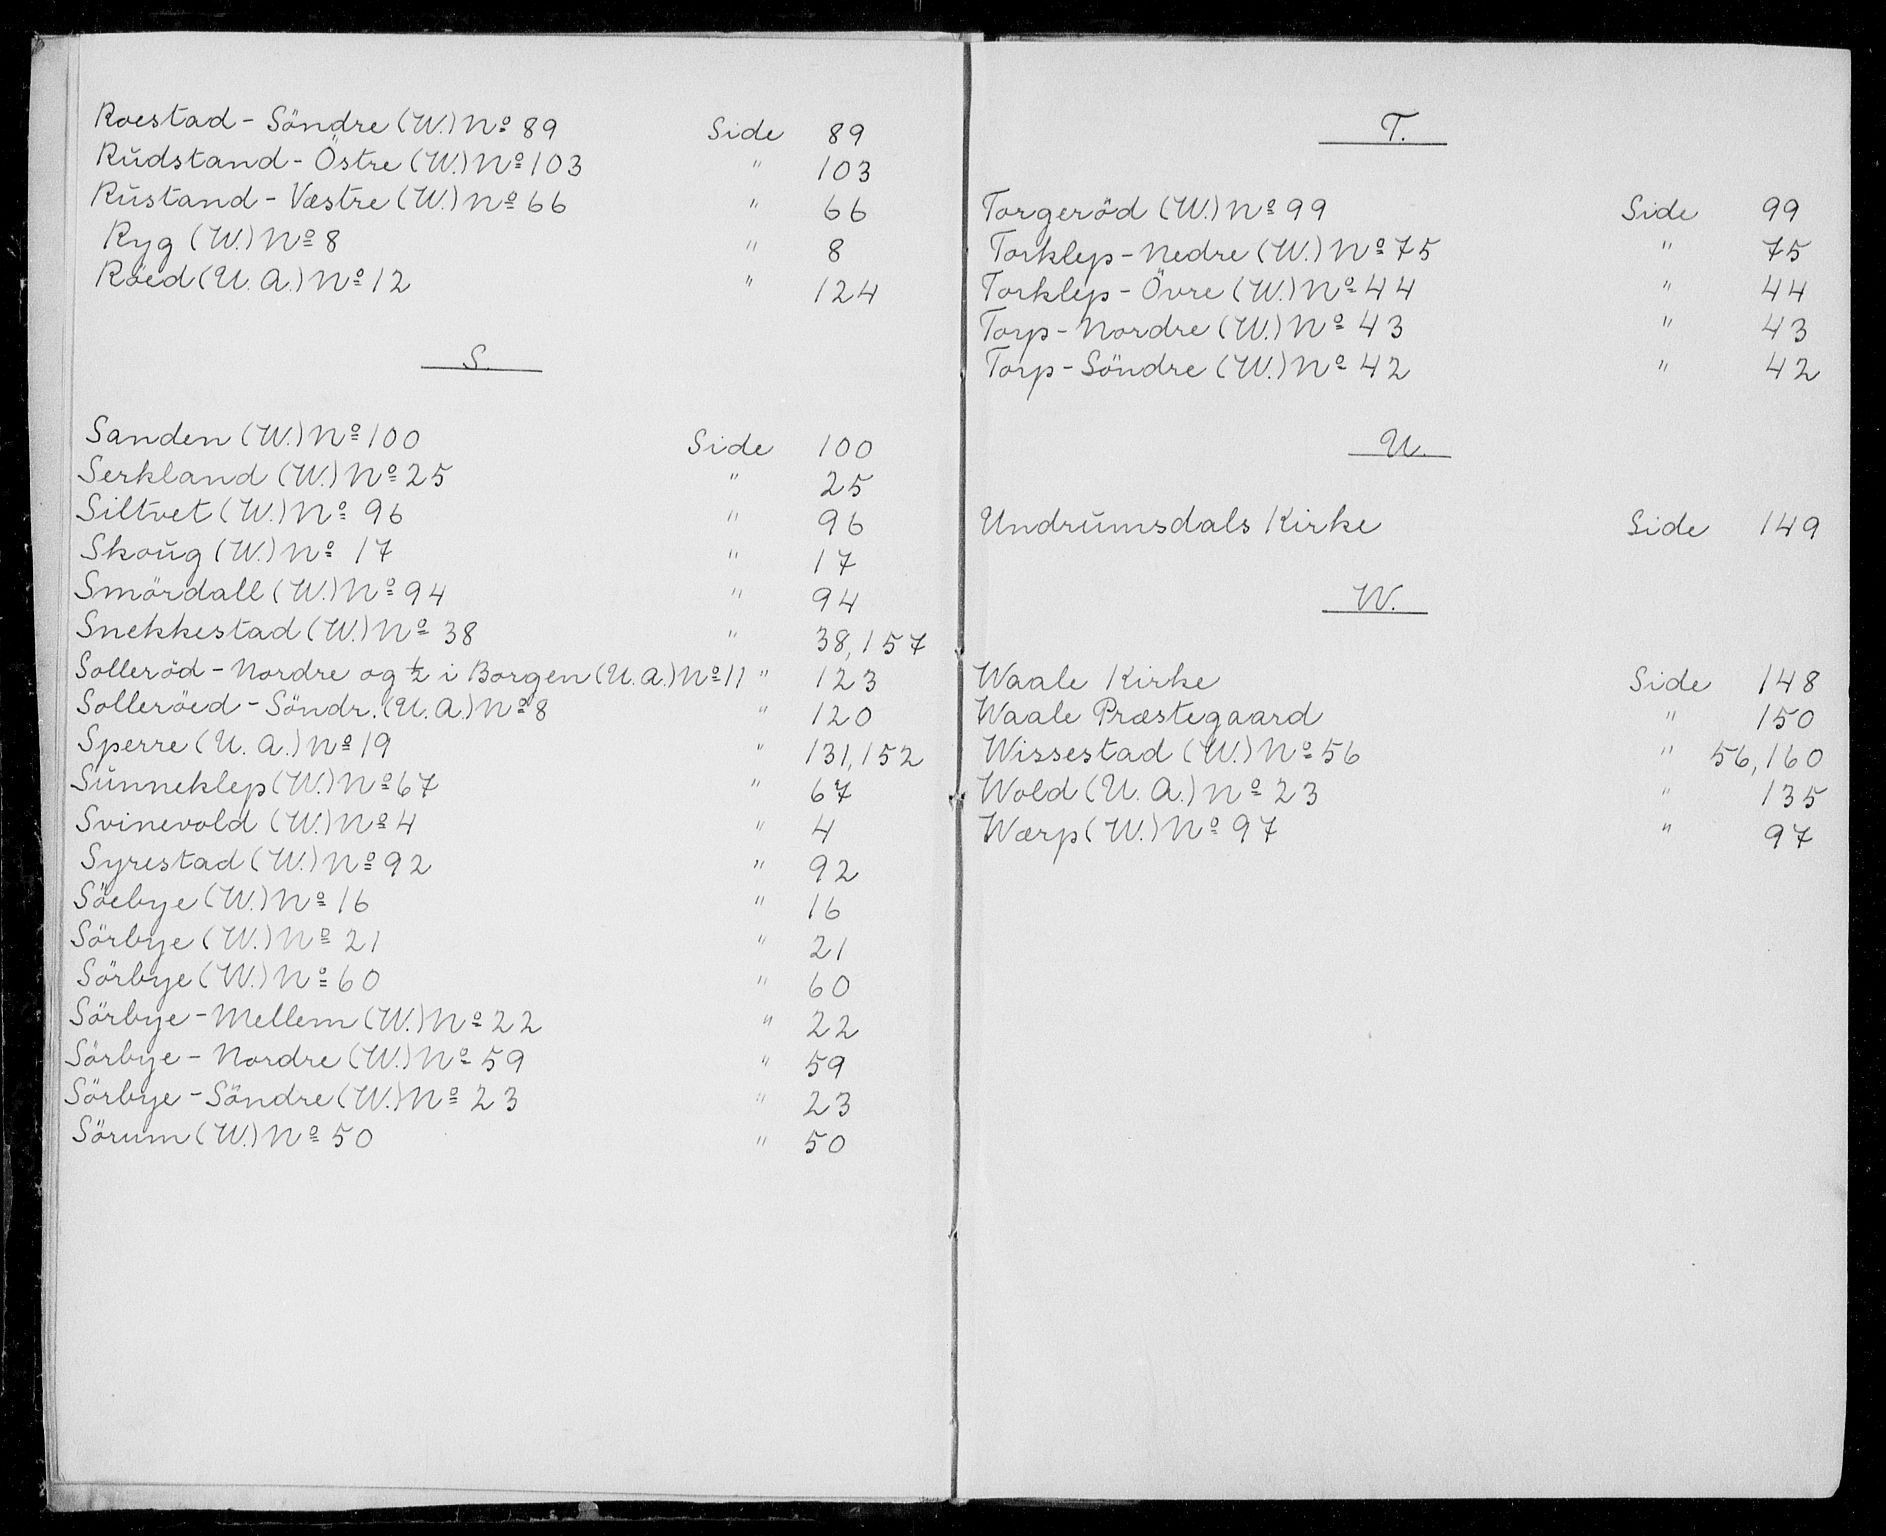 Roestad - Söndre (W.) No 89 Side 89
Rudstand - Östre (W.) No 103 " 103
Rustand - Væstre (W.) No 66 " 66
Ryg (W.) No 8 " 8
Röed (U. A.) No 12 " 124
S.
Sanden (W.) No 100 Side 100
Serkland (W.) No 25 " 25
Siltvet (W.) No 96 " 96
Skoug (W.) No 17 " 17
Smördall (W.) No 94 " 94
Snekkestad (W.) No 38 " 38, 157
Solleröd - Nordre og 1/2 i Borgen (U. A.) No 11 " 123
Solleröed - Söndr. (U. A.) No 8 " 120
Sperre (U. A.) No 19 " 131, 152
Sunneklep (W.) No 67 " 67
Svinevold (W.) No 4 " 4
Syrestad (W.) No 92 " 92
Söebye (W.) No 16 " 16
Sörbye (W.) No 21 " 21
Sörbye (W.) No 60 " 60
Sörbye - Mellem (W.) No 22 " 22
Sörbye - Nordre (W.) No 59 " 59
Sörbye - Söndre (W.) No 23 " 23
Sörum (W.) No 50 " 50
T.
Torgeröd (W.) No 99 Side 99
Torklep - Nedre (W.) No 75 " 75
Torklep - Övre (W.) No 44 " 44
Torp - Nordre (W.) No 43 " 43
Torp - Söndre (W.) No 42 " 42
U.
Undrumsdals Kirke Side 149
W.
Waale Kirke Side 148
Waale Præstegaard " 150
Wissestad (W.) No 56 " 56, 160
Wold (U. A.) No 23 " 135
Wærp (W.) No 97 " 97